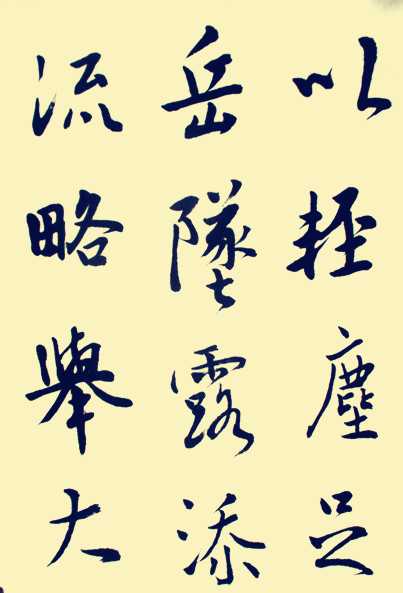 以輕塵足
岳墜露添
流略舉大